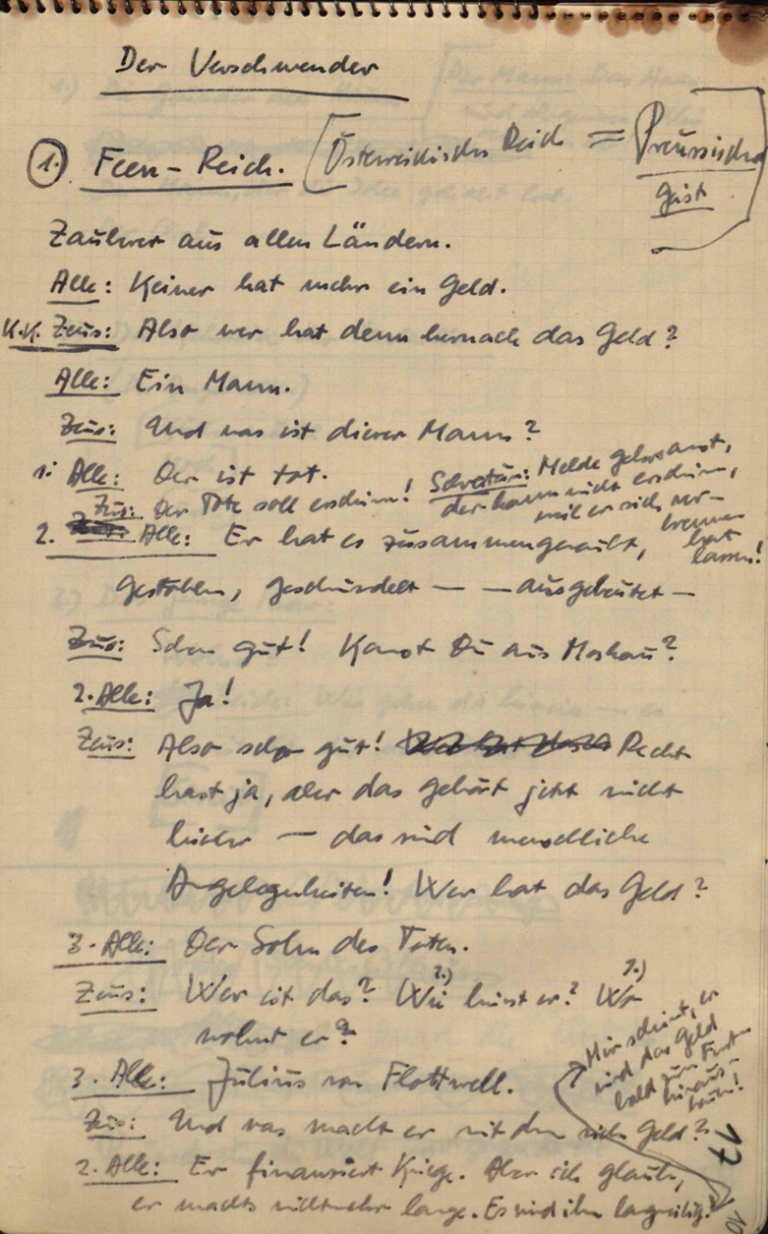 Der Verschwender
1.) Feen-Reich. [Österreichisches Reich = Preussischer
Geist]
Zauberer aus allen Ländern.
Alle: Keiner hat mehr ein Geld.
K.K. Zeus: Also wer hat denn hernach das Geld?
Alle: Ein Mann.
Zeus: Und was ist dieser Mann?
1. Alle: Der ist tot.
Zeus: Der Tote soll erscheinen! Sekretär: Melde gehorsamst,
der kann nicht erscheinen,
weil er sich ver-
brennen
hat
lassen!
2. Alle: Er hat es zusammengeraubt,
gestohlen, geschwindelt — — ausgebeutet —
Zeus: Schon gut! Kommst Du aus Moskau?
2. Alle: Ja!
Zeus: Also schon gut! Recht
hast ja, aber das gehört jetzt nicht
hieher — das sind menschliche
Angelegenheiten! Wer hat das Geld?
3. Alle: Der Sohn des Toten.
Zeus: Wer ist das? Wie heisst er? Wo
wohnt er?
3. Alle: Julius von Flottwell.
Mir scheint, er
wird das Geld
bald zum Fenster
hinaus-
Zeus: Und was macht er mit dem Geld?
2. Alle: Er finanziert Kriege. Aber ich glaube,
er machts nichtmehr lange. Es wird ihm langweilig.
17